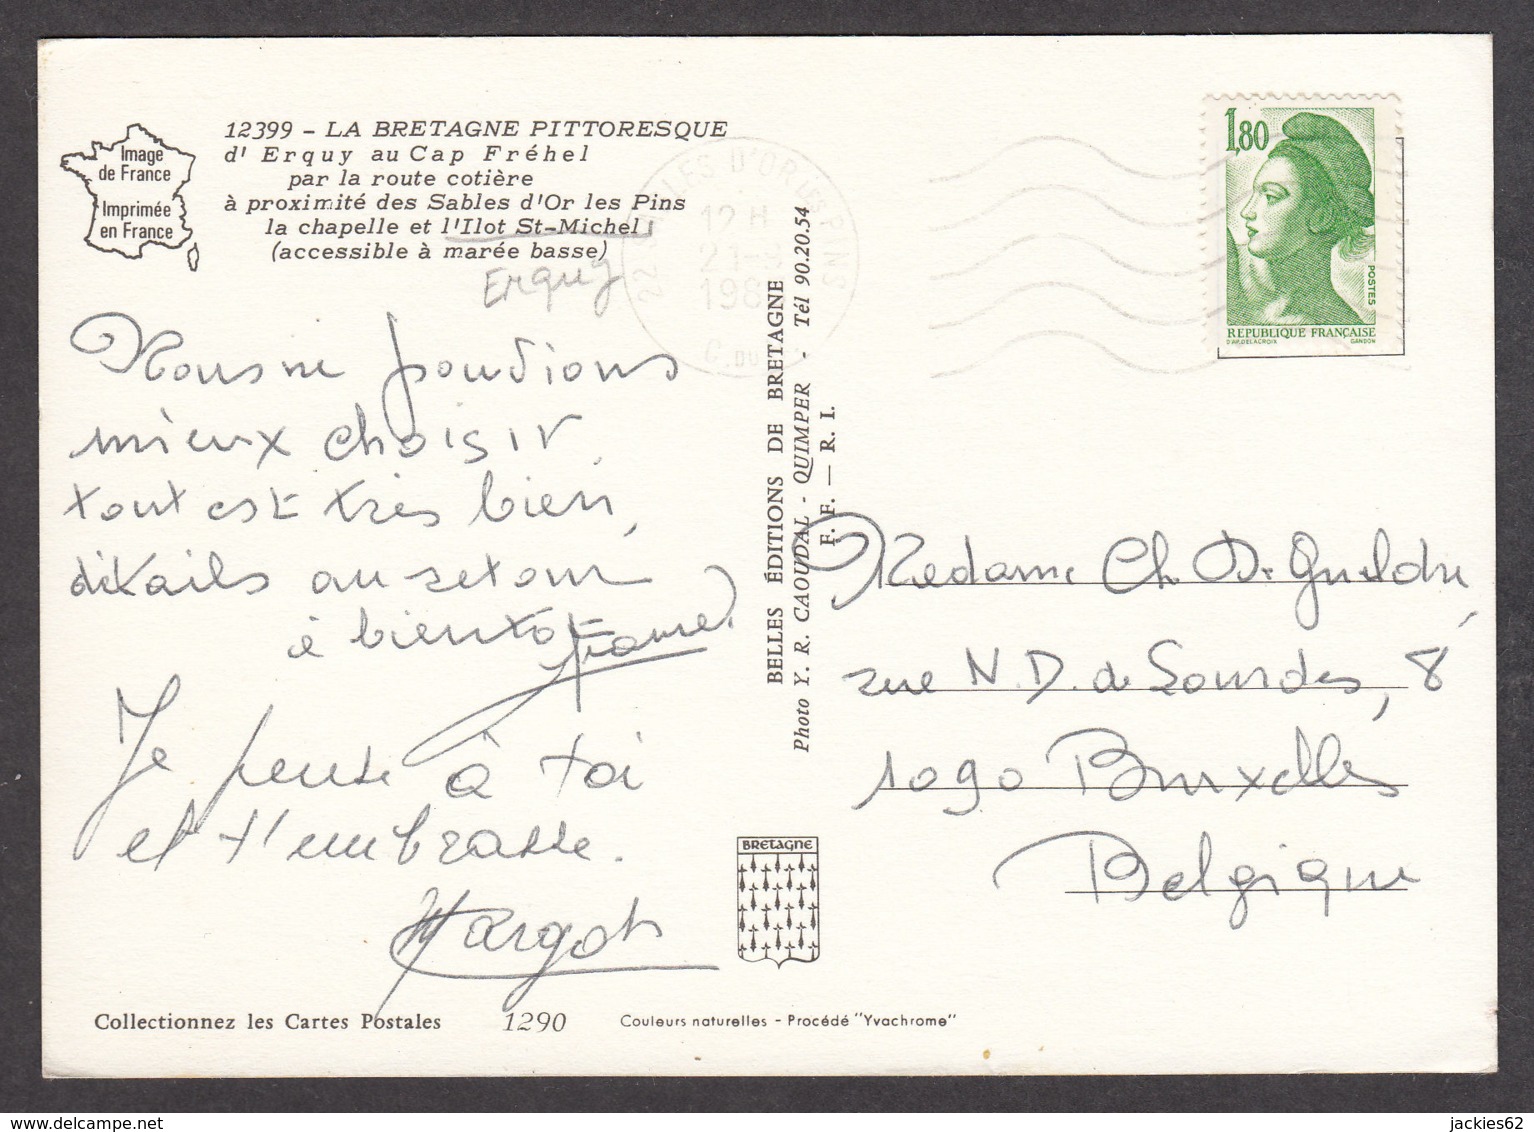 12399 - LA BRETAGNE PITTORESQUE
d' Erquy au Cap Fréhel
par la route cotière
à proximité des Sables d'Or les Pins
la chapelle et l'Ilot St-Michel
(accessible à marée basse)
Image
de France
Imprimée
en France
Erquy
Nous ne pouvions
mieux choisir
tout est très bien,
détails au retour
à bientôt
Je pense à toi
et t'embrasse.
Margot
BRETAGNE
Collectionnez les Cartes Postales 1290 Couleurs naturelles - Procédé "Yvachrome"
BELLES ÉDITIONS DE BRETAGNE
Photo Y. R. CAOUDAL - QUIMPER - Tél 90.20.54
F. F. — R. I.
12 H
1,80
POSTES
REPUBLIQUE FRANÇAISE
D'AP. DELACROIX GANDON
Madame Ch De Gueldre
rue N.D. de Lourdes, 8
1090 Bruxelles
Belgique
jackies62